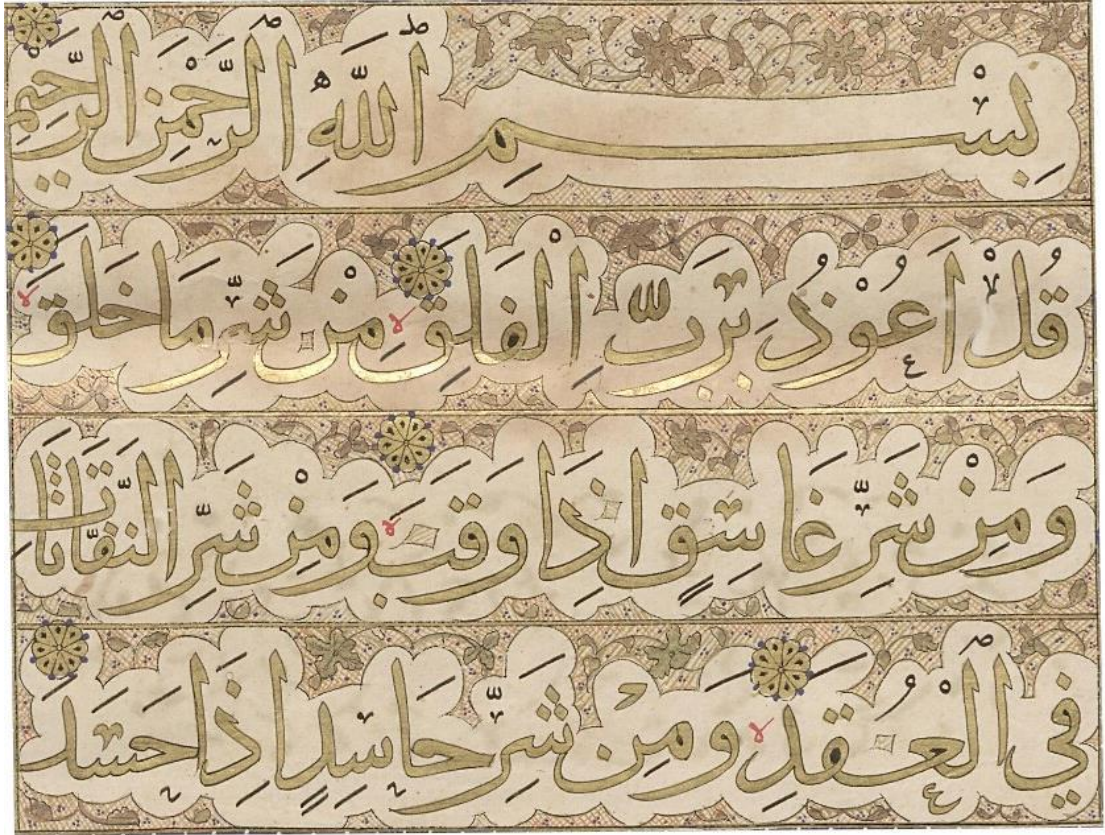 بِسْمِ اللَّهِ الرَّحْمَٰنِ الرَّحِيمِ
قُلْ اَعُوذُ بِرَبِّ الْفَلَقِ مِنْ شَرِّ مَا خَلَقَ
وَمِنْ شَرِّ غَاسِقٍ اِذَا وَقَبَ وَمِنْ شَرِّ النَّفَّاثَاتِ
فِي الْعُقَدِ وَمِنْ شَرِّ حَاسِدٍ اِذَا حَسَدَ